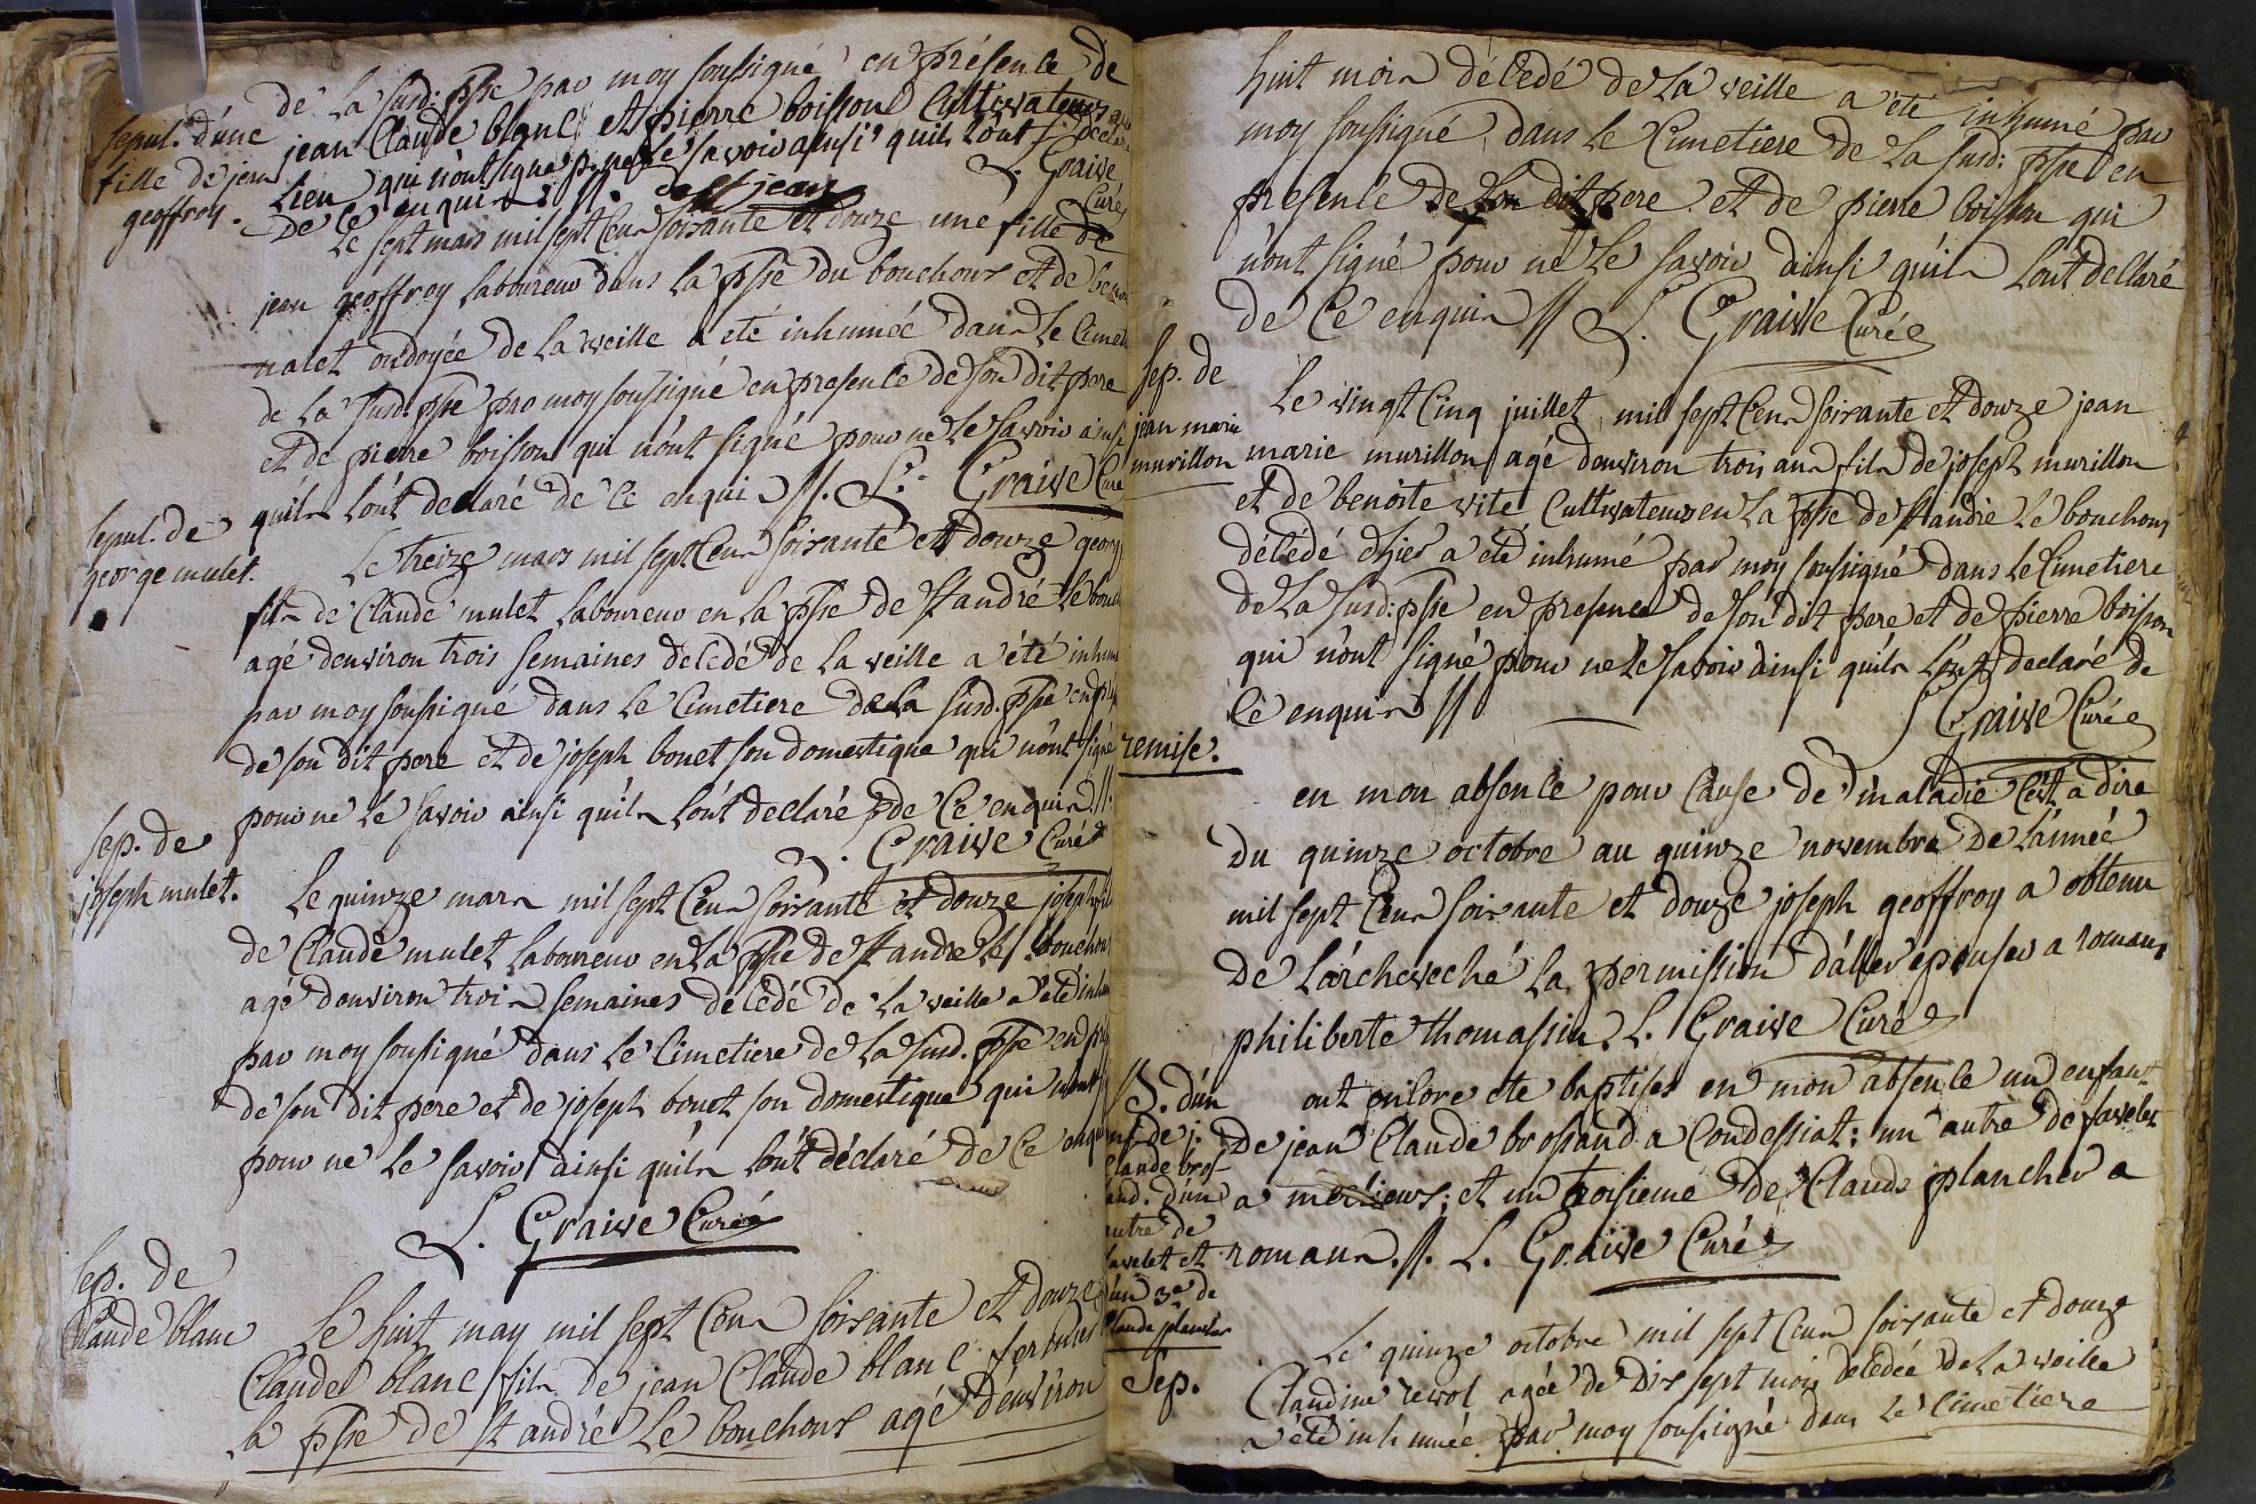 de la susd: psse par moy soussigné en présence de
jean Claude blanc et pierre boisson Cultivateurs au
lieu qui n'ont signé p. ne le savoir ainsi qu'ils l'ont declaré
de ce enquis //. L. Graive
Curé
sepul. d'une
fille de jean
geoffroy.
Le sept mars mil sept Cens soixante et douze une fille de
jean geoffroy laboureur dans la psse du bouchoux et de
nalet ondoyée de la veille a été inhumée dans le Cimet
de la susd. psse par moy soussigné en presence de son dit pere
et de pierre boisson qui n'ont signé pour ne le savoir ainsi
quils l'ont declaré de ce enquis //. L. Graive Curé
sepul. de
george mulet.
Le treize mars mil sept Cens soixante et douze georg
fils de Claude mulet laboureur en la psse de st andré le bouc
agé d'environ trois semaines decedé de la veille a été inhum
par moy soussigné dans le Cimetiere de la susd. psse en p
de son dit pere et de joseph bouet son domestique qui n'ont signé
pour ne le savoir ainsi qu'ils l'ont declaré de Ce enquis //.
L. Graive Curé
sep. de
joseph mulet.
Le quinze mars mil sept Cens soixante et douze joseph fil
de Claude mulet laboureur en la psse de st andré le bouchou
agé d'environ trois semaines décedé de la veille a été inhu
par moy soussigné dans le Cimetiere de la susd. psse en p
de son dit pere et de joseph bouet son domestique qui n'ont
pour ne le savoir ainsi qu'ils l'ont déclaré de Ce enqui
L. Graive Curé
sep. de
Claude blanc
Le huit may mil sept Cens soixante et douze
Claude blanc fils de jean Claude blanc
la psse de st andré le bouchoux agé d'environ
huit mois décedé de la veille a été inhumé par
moy soussigné dans le Cimetiere de la susd: psse en
presence de son dit pere et de pierre boisson qui
n'ont signé pour ne le savoir ainsi qu'ils l'ont declaré
de Ce enquis // L. Graive Curé
sep. de
jean marie
murillon
Le vingt Cinq juillet mil sept Cens soixante et douze jean
marie murillon agé d'environ trois ans fils de joseph murillon
et de benoite vite Cultivateurs en la psse de st andré le bouchoux
décédé d'hier a été inhumé par moy soussigné dans le Cimetiere
de la susd: psse en presence de son dit pere et de pierre boisson
qui n'ont signé pour ne le savoir ainsi qu'ils l'ont declaré de
Ce enquis // L. Graive Curé
remise.
en mon absence pour Cause de maladie C'est a dire
du quinze octobre au quinze novembre de l'année
mil sept Cens soixante et douze joseph geoffroy a obtenu
de l'archeveché la permission d'aller epouser a romans
philiberte thomassin. L. Graive Curé
d'un
de j.
Claude bros-
and. d'un
autre de
favelet et
d'un 3e de
Claude plancher
ont encore eté baptisés en mon absence un enfant
de jean Claude brossand a Condessiat; un autre de favelet
a ; et un troisieme de Claude plancher a
romans. //. L. Graive Curé
Sep.
Le quinze octobre mil sept Cens soixante et douze
Claudine revol agée de dix sept mois decedée de la veille
a été inhumée par moy soussigné dans le Cimetiere